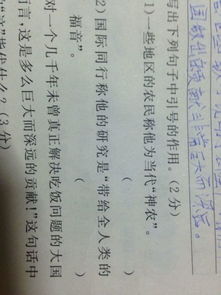 贡献非常巨大而深远。
写出下列句子中引号的作用。(2分)
1)一些地区的农民称他为当代“神农”。
(　　)
2)国际同行称他的研究是“带给全人类的
福音”。 (　　)
对一个几千年未曾真正解决吃饭问题的大国
言,这是多么巨大而深远的贡献!”这句话中
“这”指代什么?(3分)